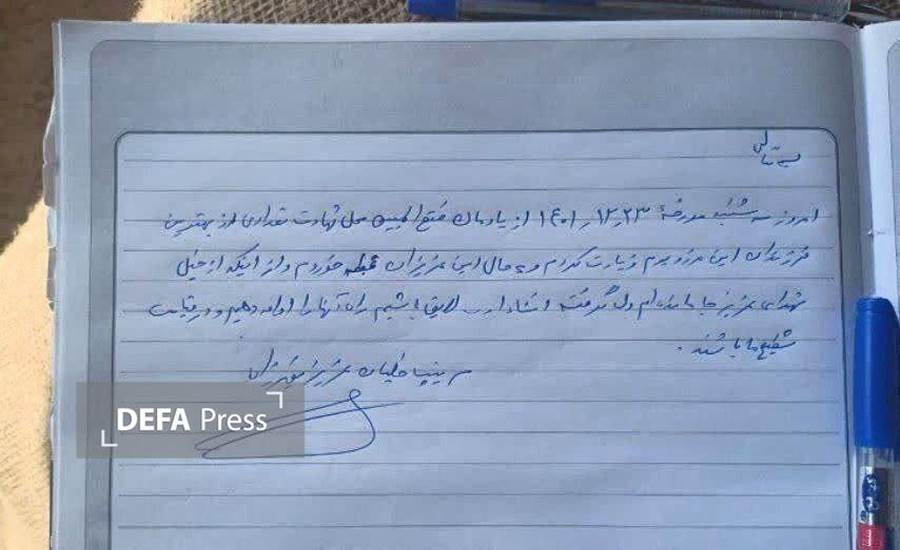 بسمه تعالی
امروز سه شنبه مورخهٔ ۱۴۰۱٫۱۲٫۲۳ از یادمان فتح المبین محل شهادت تعدادی از بهترین
فرزندان این مرز و بوم زیارت کردم و به حال این عزیزان غبطه خوردم و از اینکه از خیل
شهدای عزیز جا مانده‌ام دلم گرفته انشاءا... لایق باشیم راه آنها را ادامه دهیم و در قیامت
شفیع ما باشند.
سرتیپ خلبان عزیز
DEFA Press